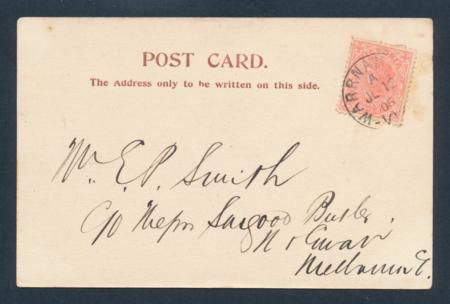 POST CARD.
The Address only to be written on this side.
WARRNA
A
JL 1
05
Mr. E. P. Smith
C/o Messrs Sargood Butler
Melbourne.